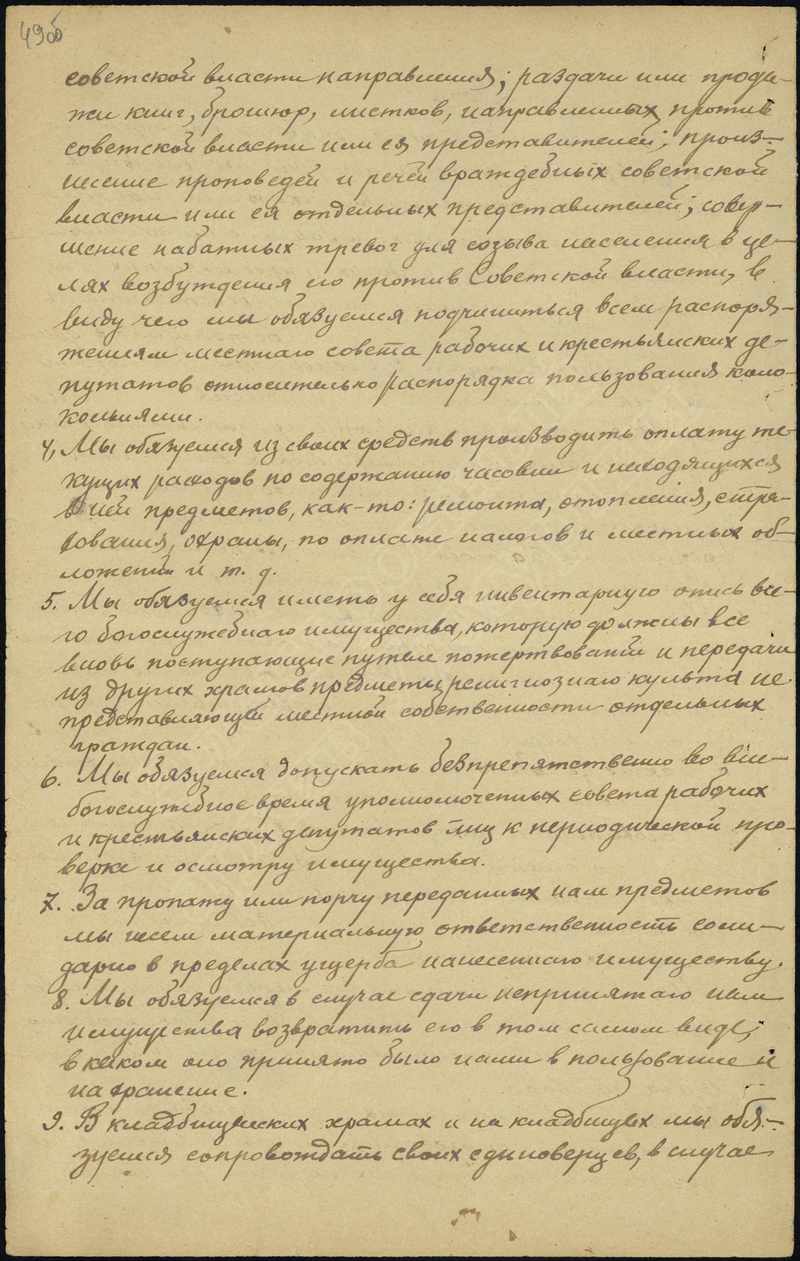 49об
советской власти направления; раздачи или прода-
жи книг, брошюр, листков, направленных против
советской власти или ея представителей; произ-
несение проповедей и речей враждебных советской
власти или ея отдельных представителей; совер-
шение набатных тревог для созыва населения в це-
лях возбуждения его против Советской власти, в
виду чего мы обязуемся подчиниться всем распоря-
жениям местнаго совета рабочих и крестьянских де-
путатов относительно распорядка пользования коло-
кольнями.
4, Мы обязуемся из своих средств производить оплату те-
кущих расходов по содержанию часовни и находящихся
в ней предметов, как-то: ремонта, отопления, стра-
хования, охраны, по оплате налогов и местных об-
ложений и т. д.
5. Мы обязуемся иметь у себя инвентарную опись все-
го богослужебнаго имущества, которую должны все
вновь поступающие путем пожертвований и передачи
из других храмов предметы религиознаго культа не
представляющий местной собственности отдельных
граждан.
6. Мы обязуемся допускать безпрепятственно во вне-
богослужебное время уполномоченных совета рабочих
и крестьянских депутатов лиц к периодической про-
верке и осмотру имущества.
7. За пропажу или порчу переданных нам предметов
мы несем материальную ответственность соли-
дарно в пределах ущерба нанесеннаго имуществу.
8. Мы обязуемся в случае сдачи непринятаго нами
имущества возвратить его в том самом виде,
в каком оно принято было нами в пользование и
на хранение.
9. В кладбищенских храмах и на кладбищах мы обя-
зуемся сопровождать своих единоверцев, в случае